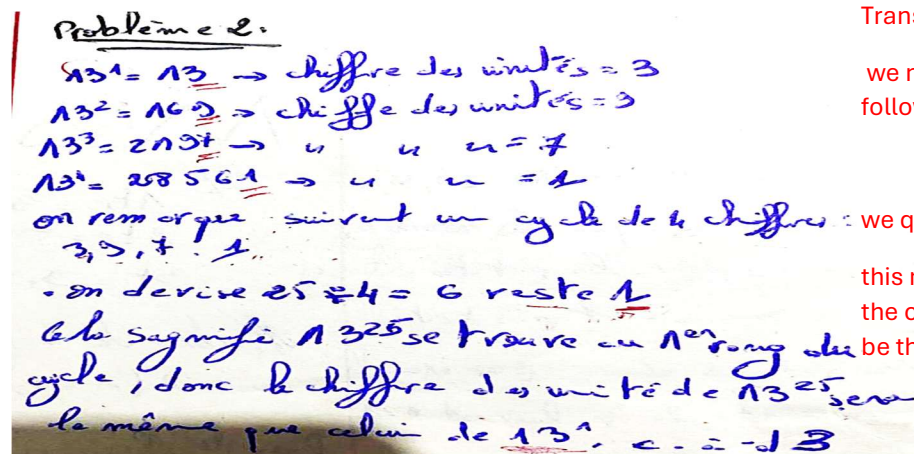 Problème 2:
13¹ = 13 → chiffre des unités = 3
13² = 169 → chiffe des unités = 9
13³ = 2197 → " " " = 7
13⁴ = 28561 → " " = 1
on remarque suivent un cycle de 4 chiffres :
3, 9, 7. 1.
. on devise 25 ÷ 4 = 6 reste 1
Cela sagnifie 13²⁵ se trouve au 1er rang du
cycle, donc le chiffre des unité de 13²⁵ sera
le même que celui de 13¹, c.-à-d 3
Trans
we r
follow
we q
this r
the c
be th